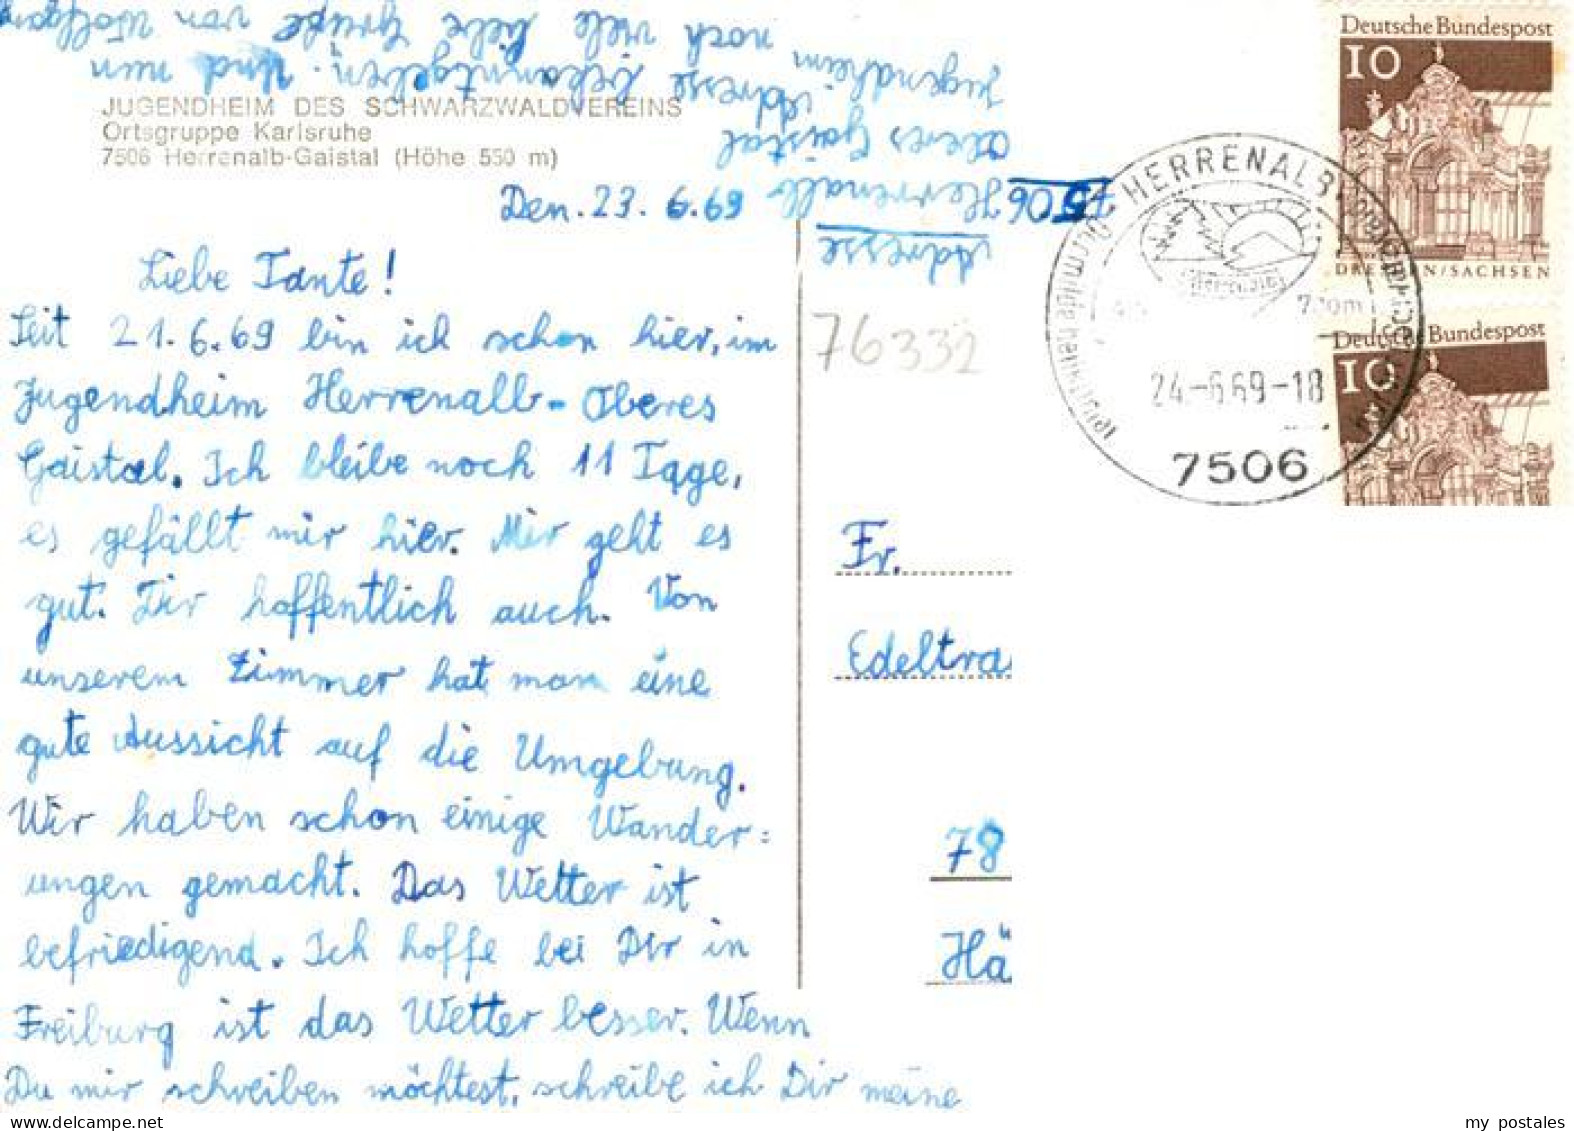 JUGENDHEIM DES SCHWARZWALDVEREINS
Ortsgruppe Karlsruhe
7506 Herrenalb-Gaistal (Höhe 550 m)
Den. 23. 6. 69
Liebe Tante!
Seit 21. 6. 69 bin ich schon hier, im
Jugendheim Herrenalb - Oberes
Gaistal. Ich bleibe noch 11 Tage,
es gefällt mir hier. Mir geht es
gut. Dir hoffentlich auch. Von
unserem Zimmer hat man eine
gute Aussicht auf die Umgebung.
Wir haben schon einige Wander=
ungen gemacht. Das Wetter ist
befriedigend. Ich hoffe bei Dir in
Freiburg ist das Wetter besser. Wenn
Du mir schreiben möchtest, schreibe ich Dir meine
Adresse bekanntgeben. Und nun
noch viele liebe Grüße von Wolfgang
Adresse
7506 Herrenalb
Oberes Gaistal
Jugendheim
76332
Fr.
Edeltra
78
Hä
Deutsche Bundespost
10
DRESDEN/SACHSEN
Deutsche Bundespost
10
HERRENALB
Herrenalb
700m
24.-6.69-18
7506
my postales